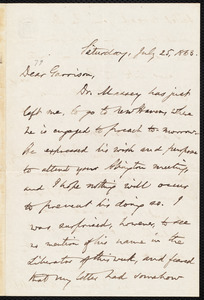 Saturday, July 25, 1863.
Dear Garrison,
Dr. Massey has just
left me, to go to New Haven, where
he is engaged to preach to-morrow.
He expressed his wish and purpose
to attend your Abington meeting,
and I hope nothing will occur
to prevent his doing so. I
was surprised, however, to see
no mention of his name in the
Liberator of this week, and feared
that my letter had somehow